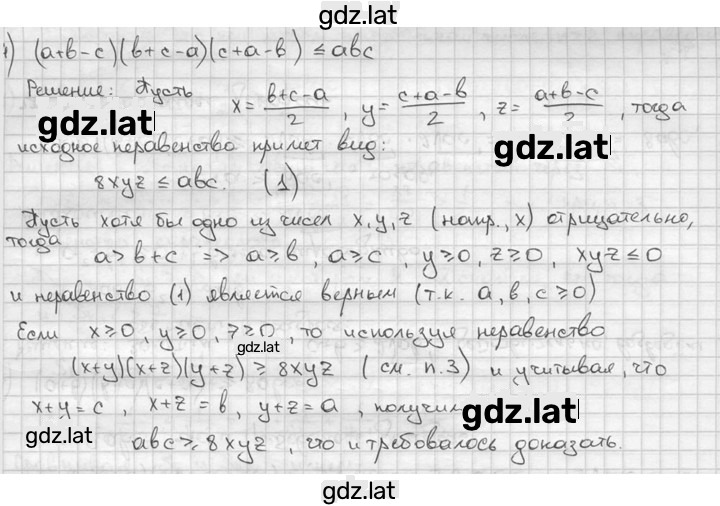 gdz.lat
1) (a+b-c)(b+c-a)(c+a-b) ≤ abc
Решение: Пусть x = (b+c-a)/2, y = (c+a-b)/2, z = (a+b-c)/2, тогда
gdz.lat
gdz.lat
исходное неравенство примет вид:
8xyz ≤ abc. (1)
Пусть хотя бы одно из чисел x, y, z (напр., x) отрицательно,
тогда
a > b+c => a ≥ b, a ≥ c, y ≥ 0, z ≥ 0, xyz ≤ 0
и неравенство (1) является верным (т.к. a, b, c ≥ 0)
Если x ≥ 0, y ≥ 0, z ≥ 0, то используя неравенство
gdz.lat
(x+y)(x+z)(y+z) ≥ 8xyz (см. п.3) и учитывая, что
x+y = c, x+z = b, y+z = a, получим
gdz.lat
gdz.lat
abc ≥ 8xyz, что и требовалось доказать.
gdz.lat